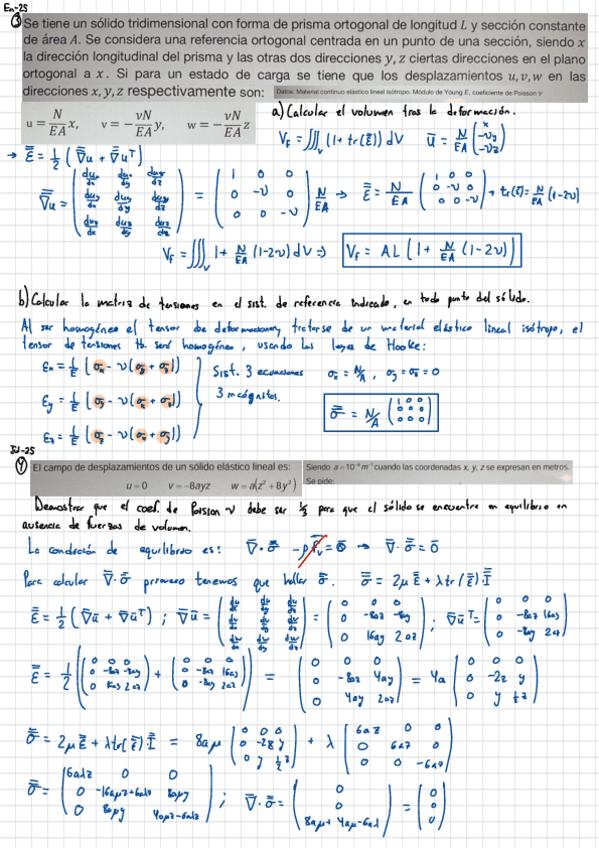 En-25
③ Se tiene un sólido tridimensional con forma de prisma ortogonal de longitud L y sección constante
de área A. Se considera una referencia ortogonal centrada en un punto de una sección, siendo x
la dirección longitudinal del prisma y las otras dos direcciones y, z ciertas direcciones en el plano
ortogonal a x. Si para un estado de carga se tiene que los desplazamientos u, v, w en las
direcciones x, y, z respectivamente son: Datos: Material continuo elástico lineal isótropo. Módulo de Young E, coeficiente de Poisson ν
a) Calcular el volumen tras la deformación.
u = N/EA x, v = −νN/EA y, w = −νN/EA z
V_F = ∭_V (1 + tr(ε̿)) dV ū = N/EA (x −νy −νz)
→ ε̿ = 1/2 (∇̄u + ∇̄u^T)
∇̄u = (du_x/dx du_x/dy du_x/dz; du_y/dx du_y/dy du_y/dz; du_z/dx du_z/dy du_z/dz) = (1 0 0; 0 -ν 0; 0 0 -ν) N/EA → ε̿ = N/EA (1 0 0; 0 -ν 0; 0 0 -ν) → tr(ε̿) = N/EA (1-2ν)
V_F = ∭_V 1 + N/EA (1-2ν) dV ⇒ V_F = AL (1 + N/EA (1-2ν))
b) Calcular la matriz de tensiones en el sist. de referencia indicado, en todo punto del sólido.
Al ser homogéneo el tensor de deformaciones y tratarse de un material elástico lineal isótropo, el
tensor de tensiones tb. será homogéneo, usando las leyes de Hooke:
ε_x = 1/E (σ_x - ν(σ_y + σ_z))
ε_y = 1/E (σ_y - ν(σ_x + σ_z))
ε_z = 1/E (σ_z - ν(σ_x + σ_y))
Sist. 3 ecuaciones
3 incógnitas.
σ_x = N/A, σ_y = σ_z = 0
σ̿ = N/A (1 0 0; 0 0 0; 0 0 0)
Jl-25
④ El campo de desplazamientos de un sólido elástico lineal es:
u=0 v=−8ayz w=a(z²+8y²)
Siendo a = 10⁻⁶ m⁻¹ cuando las coordenadas x, y, z se expresan en metros.
Se pide:
Demostrar que el coef. de Poisson ν debe ser 1/3 para que el sólido se encuentre en equilibrio en
ausencia de fuerzas de volumen.
La condición de equilibrio es: ∇̄·σ̿ - ρf̄_v = 0̄ → ∇̄·σ̿ = 0̄
Para calcular ∇̄·σ̿ primero tenemos que hallar σ̿. σ̿ = 2με̿ + λtr(ε̿)I̿
ε̿ = 1/2 (∇̄ū + ∇̄ū^T) ; ∇̄ū = = (0 0 0; 0 -8az -8ay; 0 16ay 2az) ; ∇̄ū^T = (0 0 0; 0 -8az 16ay; 0 -8ay 2az)
ε̿ = 1/2 [(0 0 0; 0 -8az -8ay; 0 16ay 2az) + (0 0 0; 0 -8az 16ay; 0 -8ay 2az)] = (0 0 0; 0 -8az 4ay; 0 4ay 2az) = 4a (0 0 0; 0 -2z y; 0 y 1/2z)
σ̿ = 2με̿ + λtr(ε̿)I̿ = 8aμ (0 0 0; 0 -2z y; 0 y 1/2z) + λ (6az 0 0; 0 6az 0; 0 0 -6az)
σ̿ = (6aλz 0 0; 0 -16aμz+6aλz 8aμy; 0 8aμy 4aμz-6aλz) ; ∇̄·σ̿ = (0; 0; 8aμ + 4aμ - 6aλ) = (0; 0; 0)